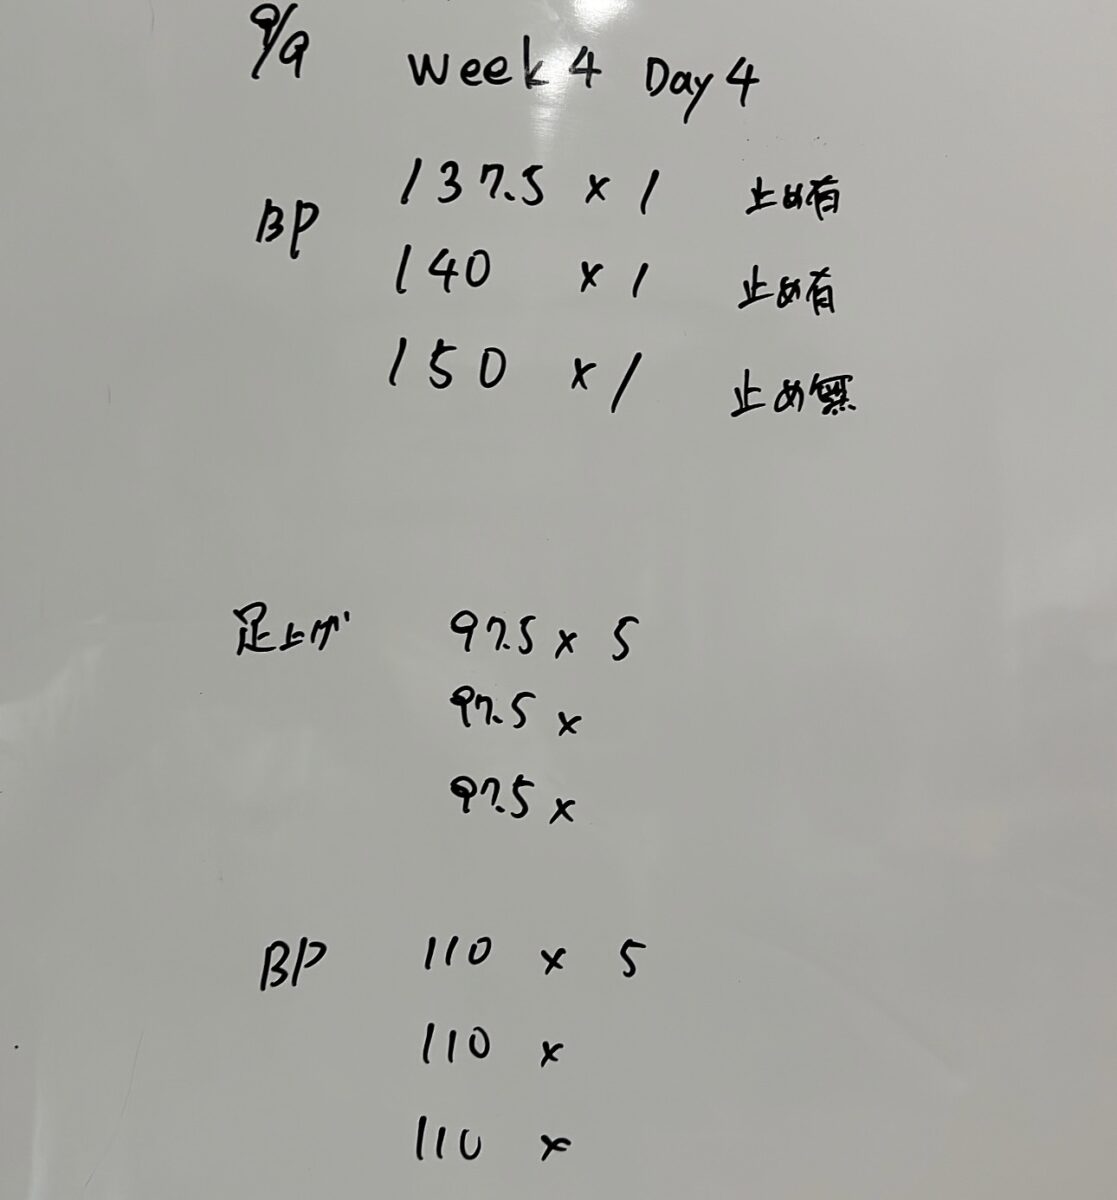 9/9 Week 4 Day 4
137.5 × 1 止め有
BP
140 × 1 止め有
150 × 1 止め無
足上げ 97.5 × 5
97.5 ×
97.5 ×
BP 110 × 5
110 ×
110 ×